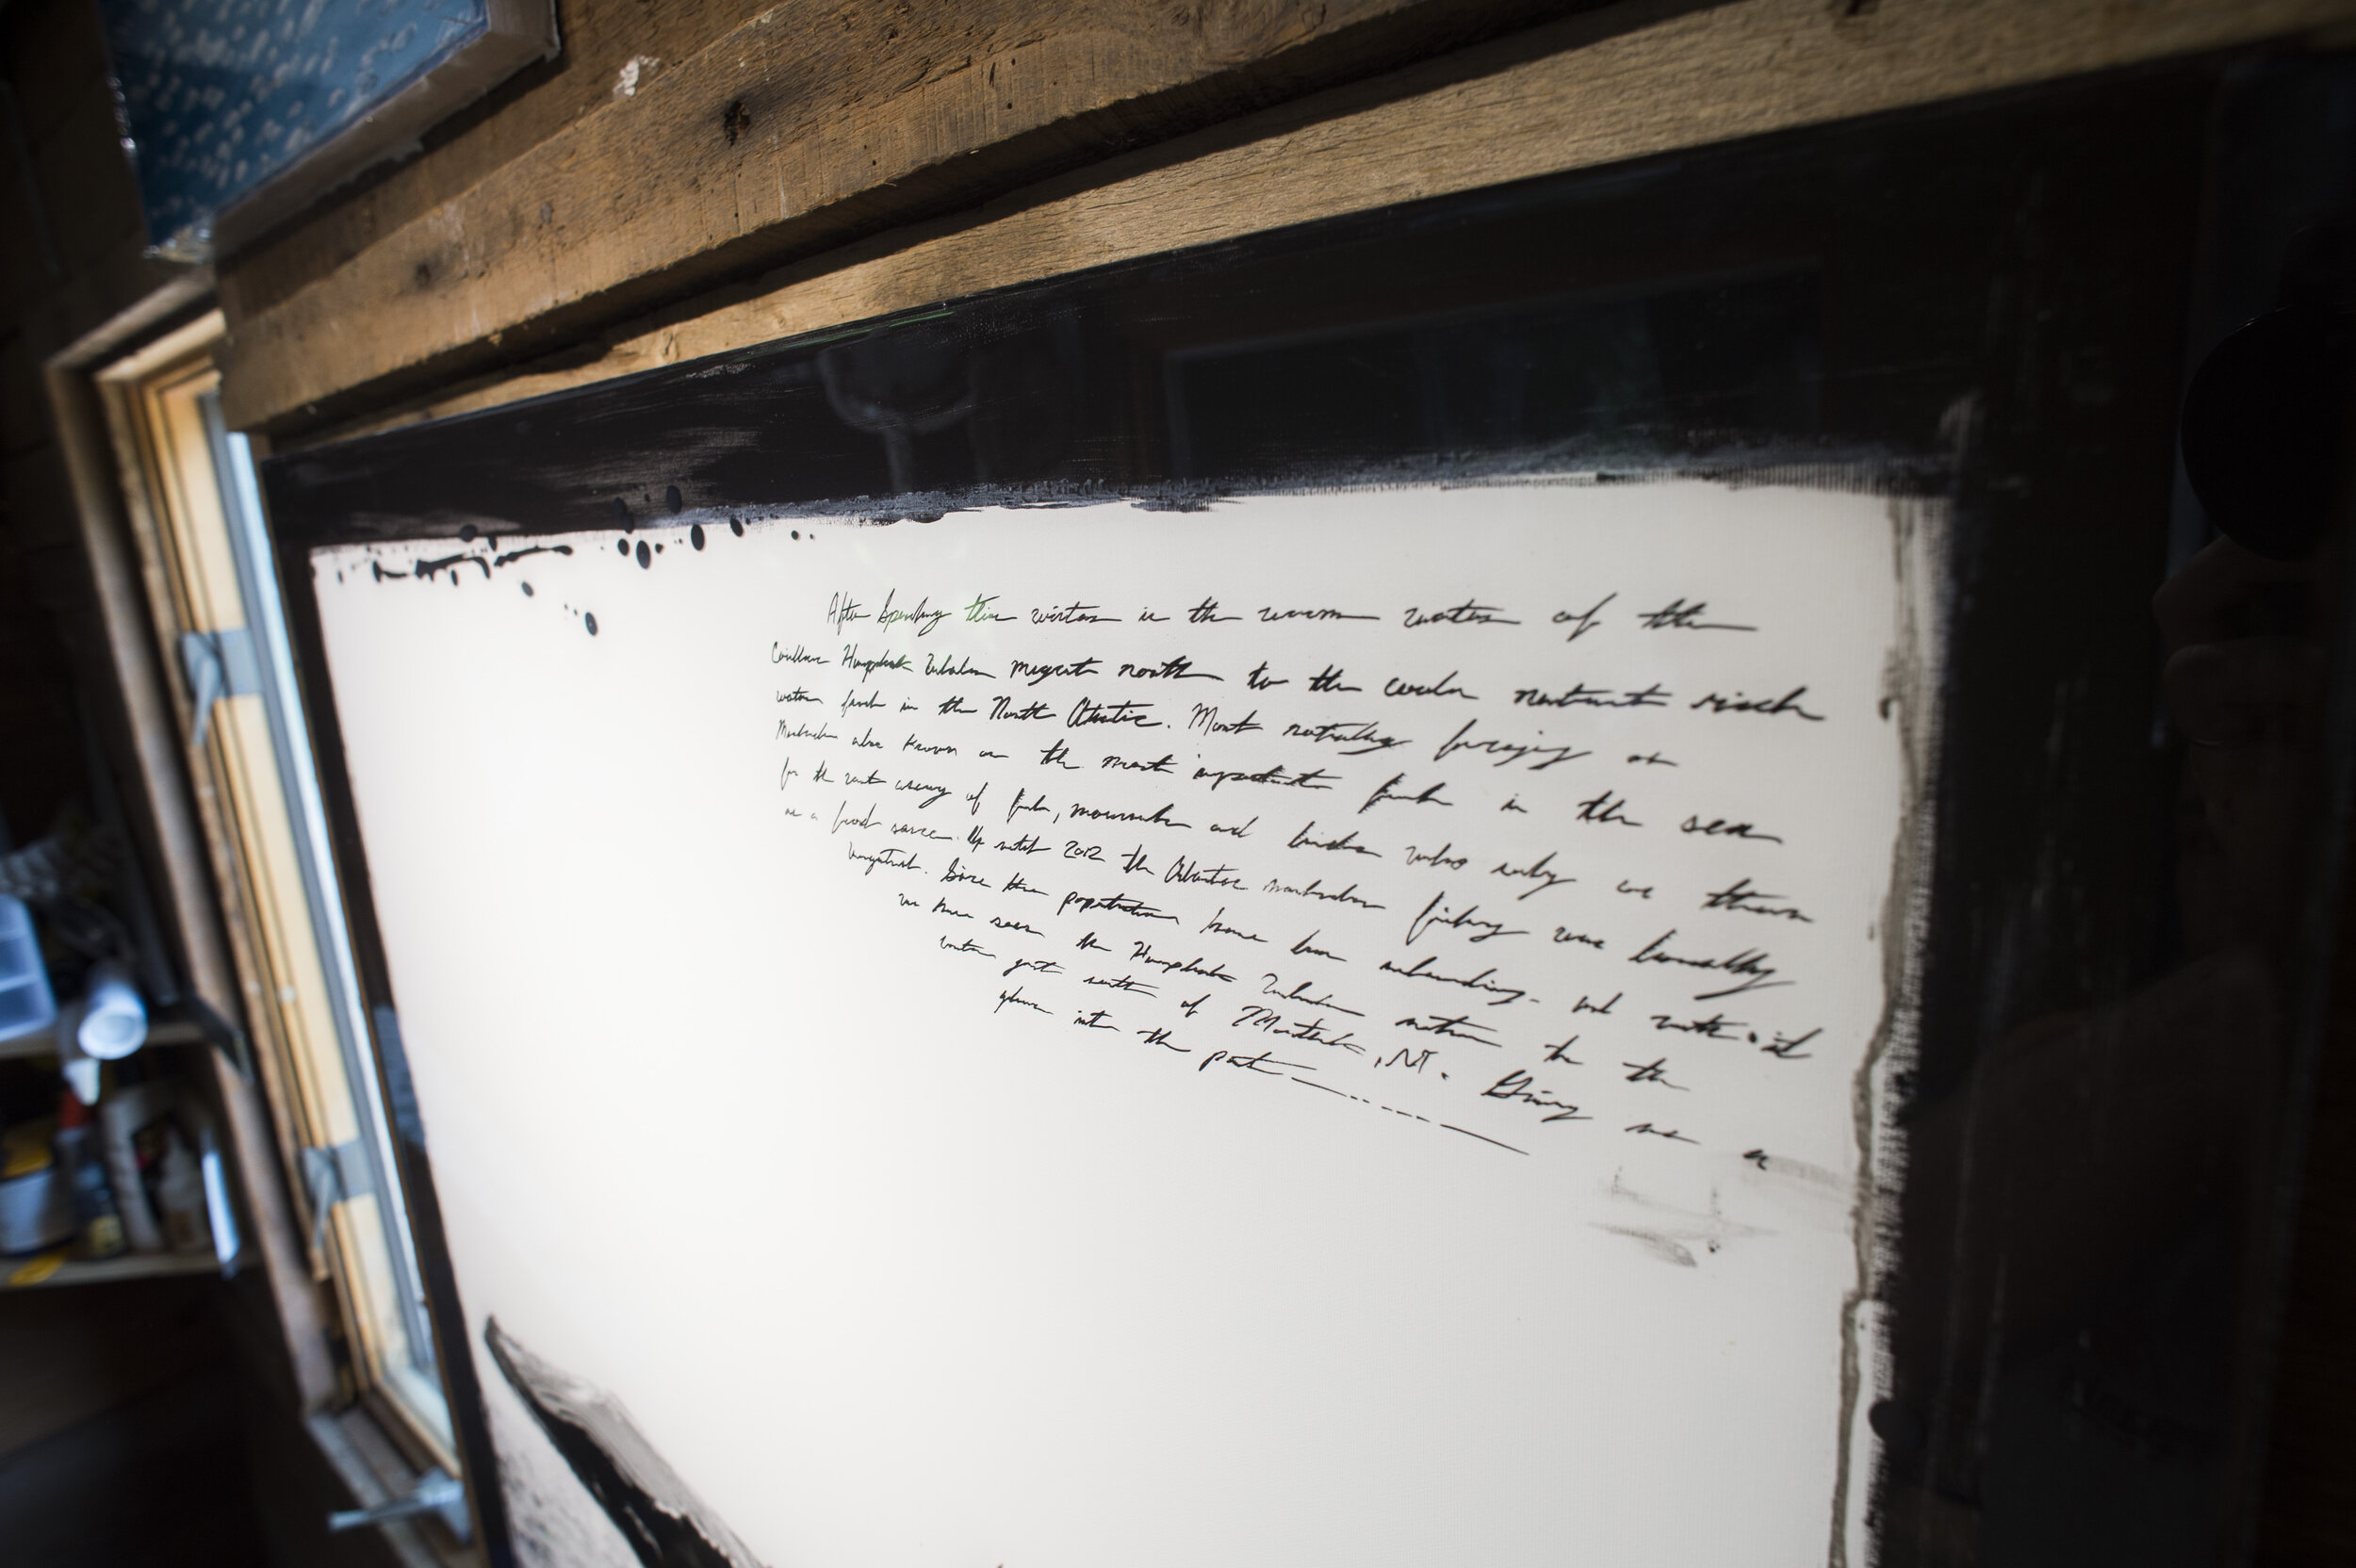 After Spending their winters in the warm waters of the
Humpback Whales migrate north to the cooler nutrient rich
waters found in the North Atlantic. Most notably foraging on
Menhaden also known as the most important fish in the sea
for the vast array of fish, mammals and birds who rely on them
as a food source. Up until 2012 the Atlantic menhaden fishery was
Since then populations have been rebounding. and with it
we have seen the Humpback Whales return to the
waters just south of Montauk, NY. Giving us a
glimpse into the past